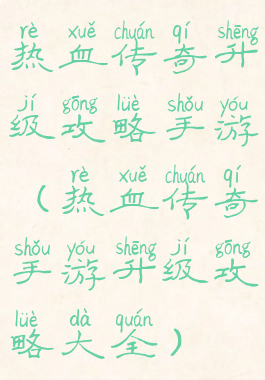 rè xuě chuán qí shēng
热血传奇升
jí gōng lüè shǒu yóu
级攻略手游
rè xuě chuán qí
(热血传奇
shǒu yóu shēng jí gōng
手游升级攻
lüè dà quán
略大全)